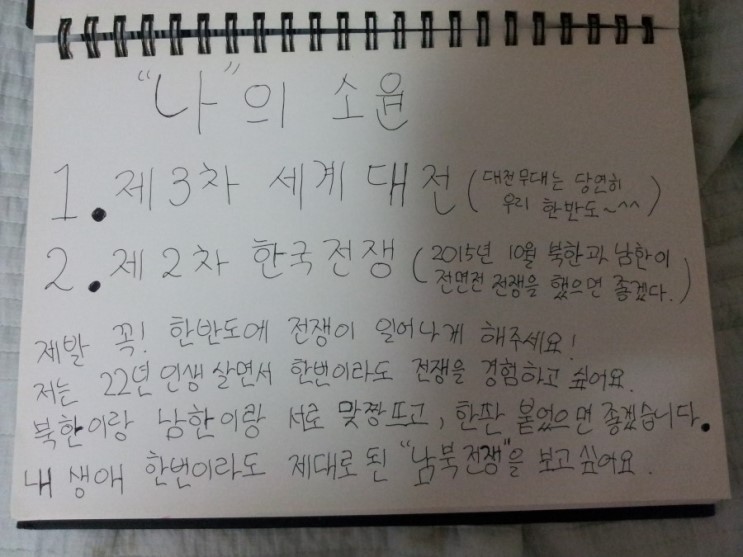 "나"의 소윰
1. 제3차 세계대전 (대전무대는 당연히
우리 한반도~^^)
2. 제2차 한국전쟁 (2015년 10월 북한과 남한이
전면전 전쟁을 했으면 좋겠다.)
제발 꼭! 한반도에 전쟁이 일어나게 해주세요!
저는 22년 인생 살면서 한번이라도 전쟁을 경험하고 싶어요.
북한이랑 남한이랑 서로 맞짱뜨고, 한판 붙었으면 좋겠습니다.
내 생애 한번이라도 제대로 된 "남북전쟁"을 보고싶어요.